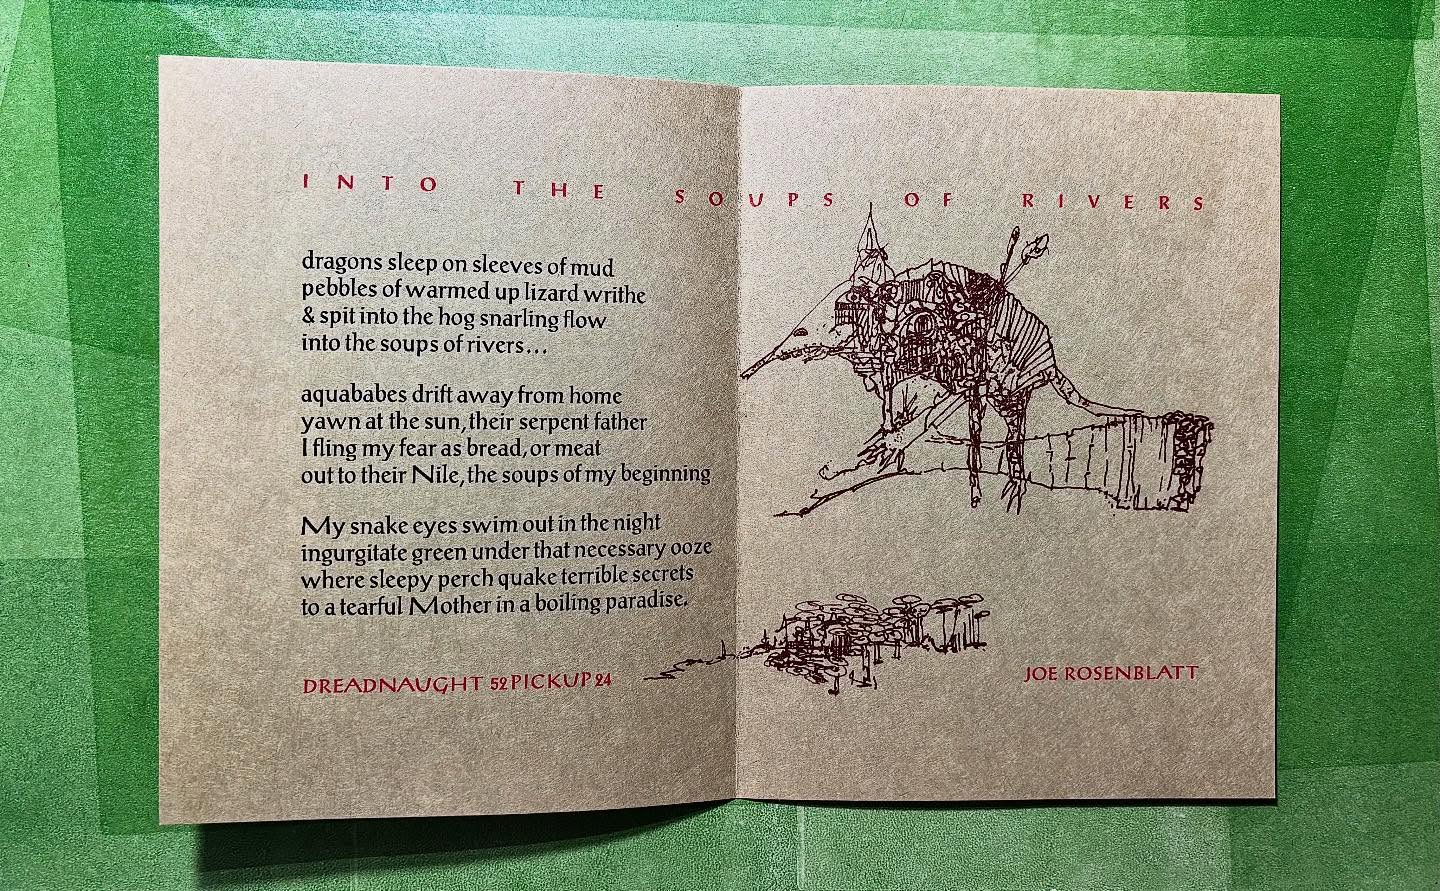 INTO THE SOUPS OF RIVERS
dragons sleep on sleeves of mud
pebbles of warmed up lizard writhe
& spit into the hog snarling flow
into the soups of rivers...
aquababes drift away from home
yawn at the sun, their serpent father
I fling my fear as bread, or meat
out to their Nile, the soups of my beginning
My snake eyes swim out in the night
ingurgitate green under that necessary ooze
where sleepy perch quake terrible secrets
to a tearful Mother in a boiling paradise.
DREADNAUGHT 52 PICKUP 24
JOE ROSENBLATT